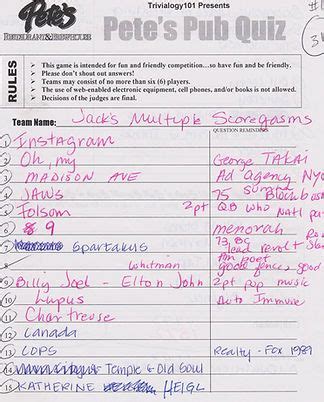 Trivialogy101 Presents
Pete's
RESTAURANT & BREWHOUSE
Pete's Pub Quiz
RULES
➢ This game is intended for fun and friendly competition...so have fun and be friendly.
➢ Please don't shout out answers!
➢ Teams may consist of no more than six (6) players.
➢ The use of web-enabled electronic equipment, cell phones, and/or books is not allowed.
➢ Decisions of the judges are final.
Team Name: Jack's Multiple Scoregasms
QUESTION REMINDERS
1 Instagram
2 Oh, my George TAKAI
3 MADISON AVE Ad agency NYC
4 JAWS 75 Blockbus
5 Folsom 2pt Q.B who
6 9 menorah
7 Spartakus 73 BC lead revolt
8 Whitman good fences good
9 Billy Joel - Elton John 2pt pop music
10 Lupus Auto Immune
11 Chartreuse
12 Canada
13 COPS Reality - Fox 1989
14 Temple & Old Soul
15 KATHERINE HEIGL